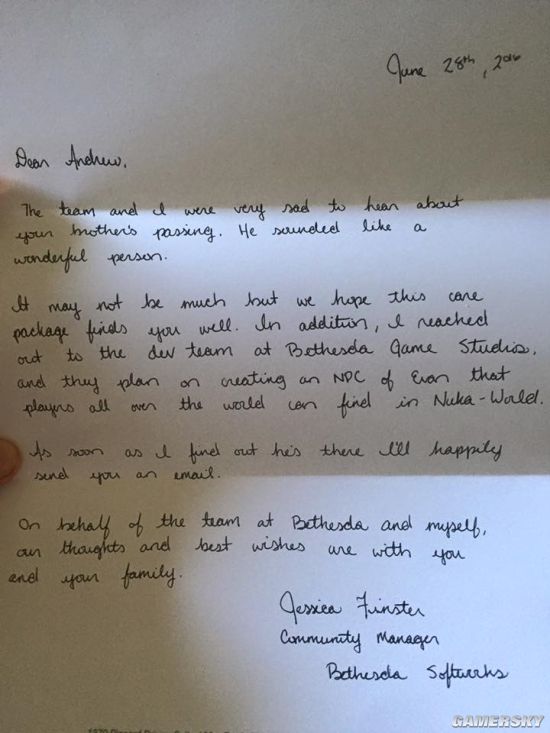 June 28th, 2016
Dear Andrew,
The team and I were very sad to hear about
your brother's passing. He sounded like a
wonderful person.
It may not be much but we hope this care
package finds you well. In addition, I reached
out to the dev team at Bethesda Game Studios,
and they plan on creating an NPC of Evan that
players all over the world can find in Nuka-World.
As soon as I find out he's there I'll happily
send you an email.
On behalf of the team at Bethesda and myself,
our thoughts and best wishes are with you
and your family.
Jessica Finster
Community Manager
Bethesda Softworks
GAMERSKY